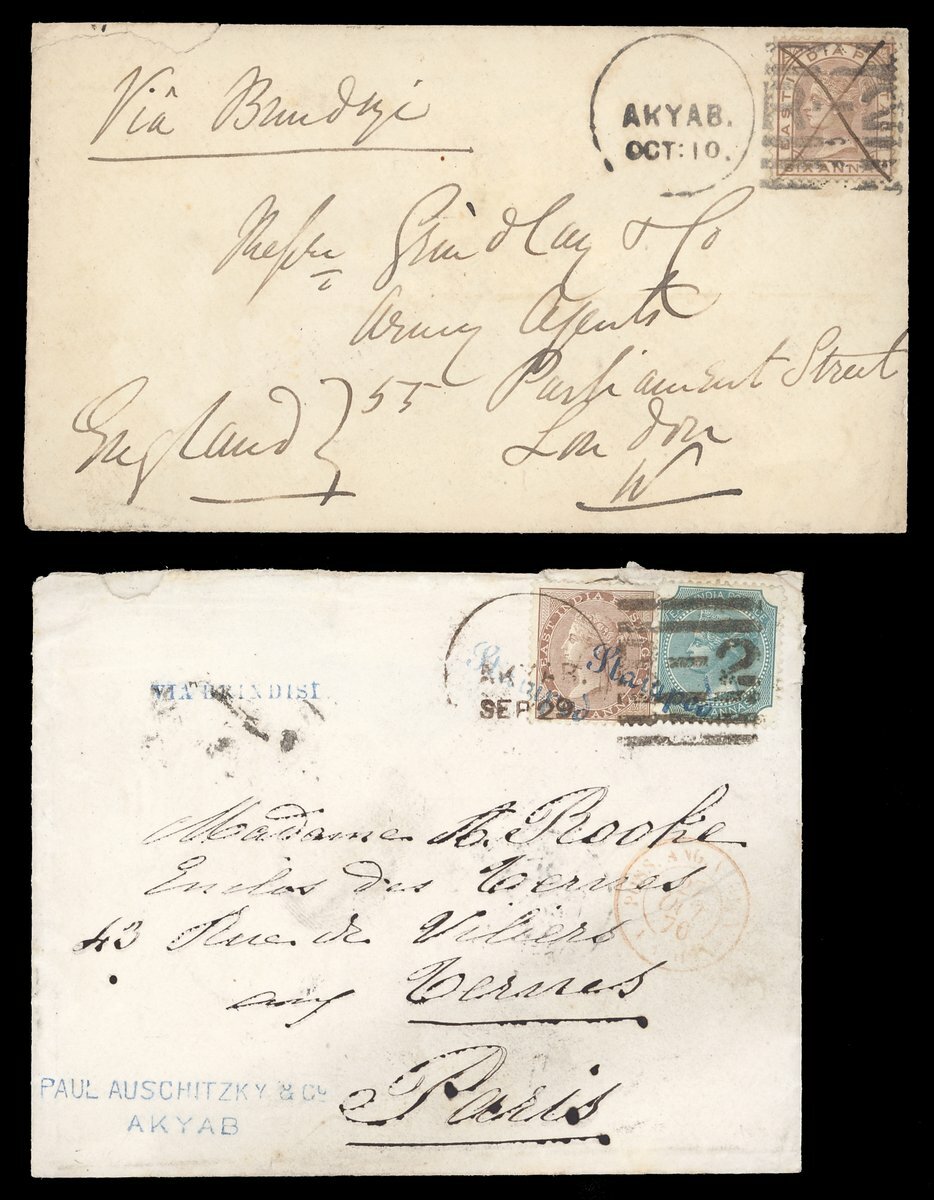 Viâ Brindisi
AKYAB.
OCT:10.
EAST INDIA
SIX ANN
Messrs Grindlay & Co
Army Agents
55 Parliament Street
England
London
W
VIA BRINDISI.
AKYAB.
SEP 29
EAST INDIA
Stamped
INDIA
2
Madame A. Rooke
Enclos des Ternes
43 Rue de Villiers
aux Ternes
Paris
ANG.
OCT
70
PAUL AUSCHITZKY & Co
AKYAB